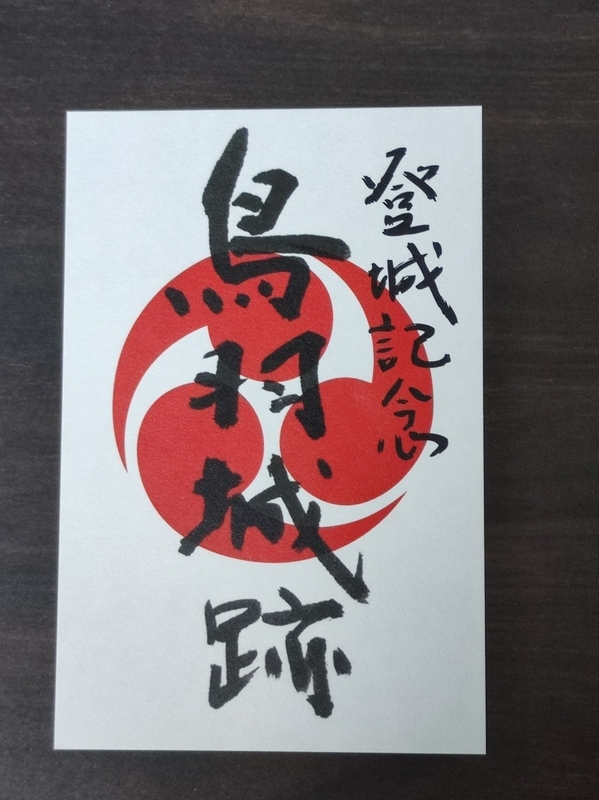 登城記念
鳥羽城跡